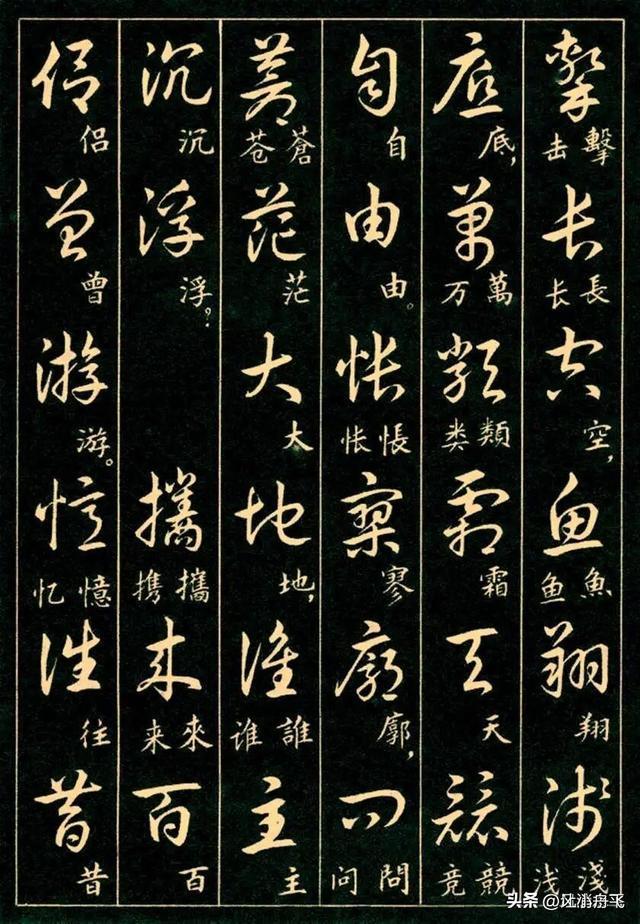 擊長空魚翔淺
击擊 长長 空， 鱼魚 翔 浅淺
底萬類霜天競
底， 万萬 类類 霜 天 竞競
自由悵寥廓問
自 由。 怅悵 寥 廓， 问問
蒼茫大地誰主
苍蒼 茫 大 地， 谁誰 主
沉浮攜來百
沉 浮？ 携攜 来來 百
侣曾游憶往昔
侣 曾 游。 忆憶 往 昔
头条